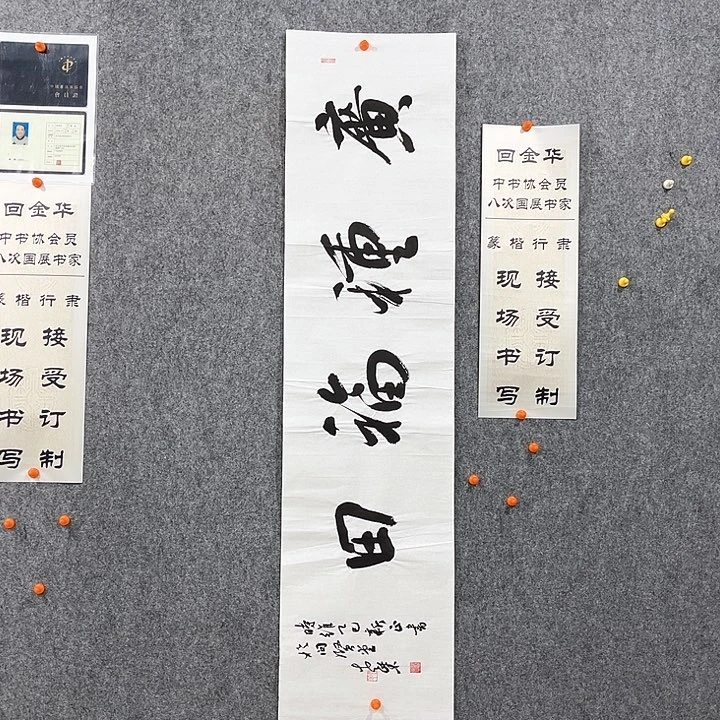 會員證
回金华
中书协会员
八次国展书家
篆楷行隶
现场书写
接受订制
廣種福田
回金华
中书协会员
八次国展书家
篆楷行隶
现场书写
接受订制